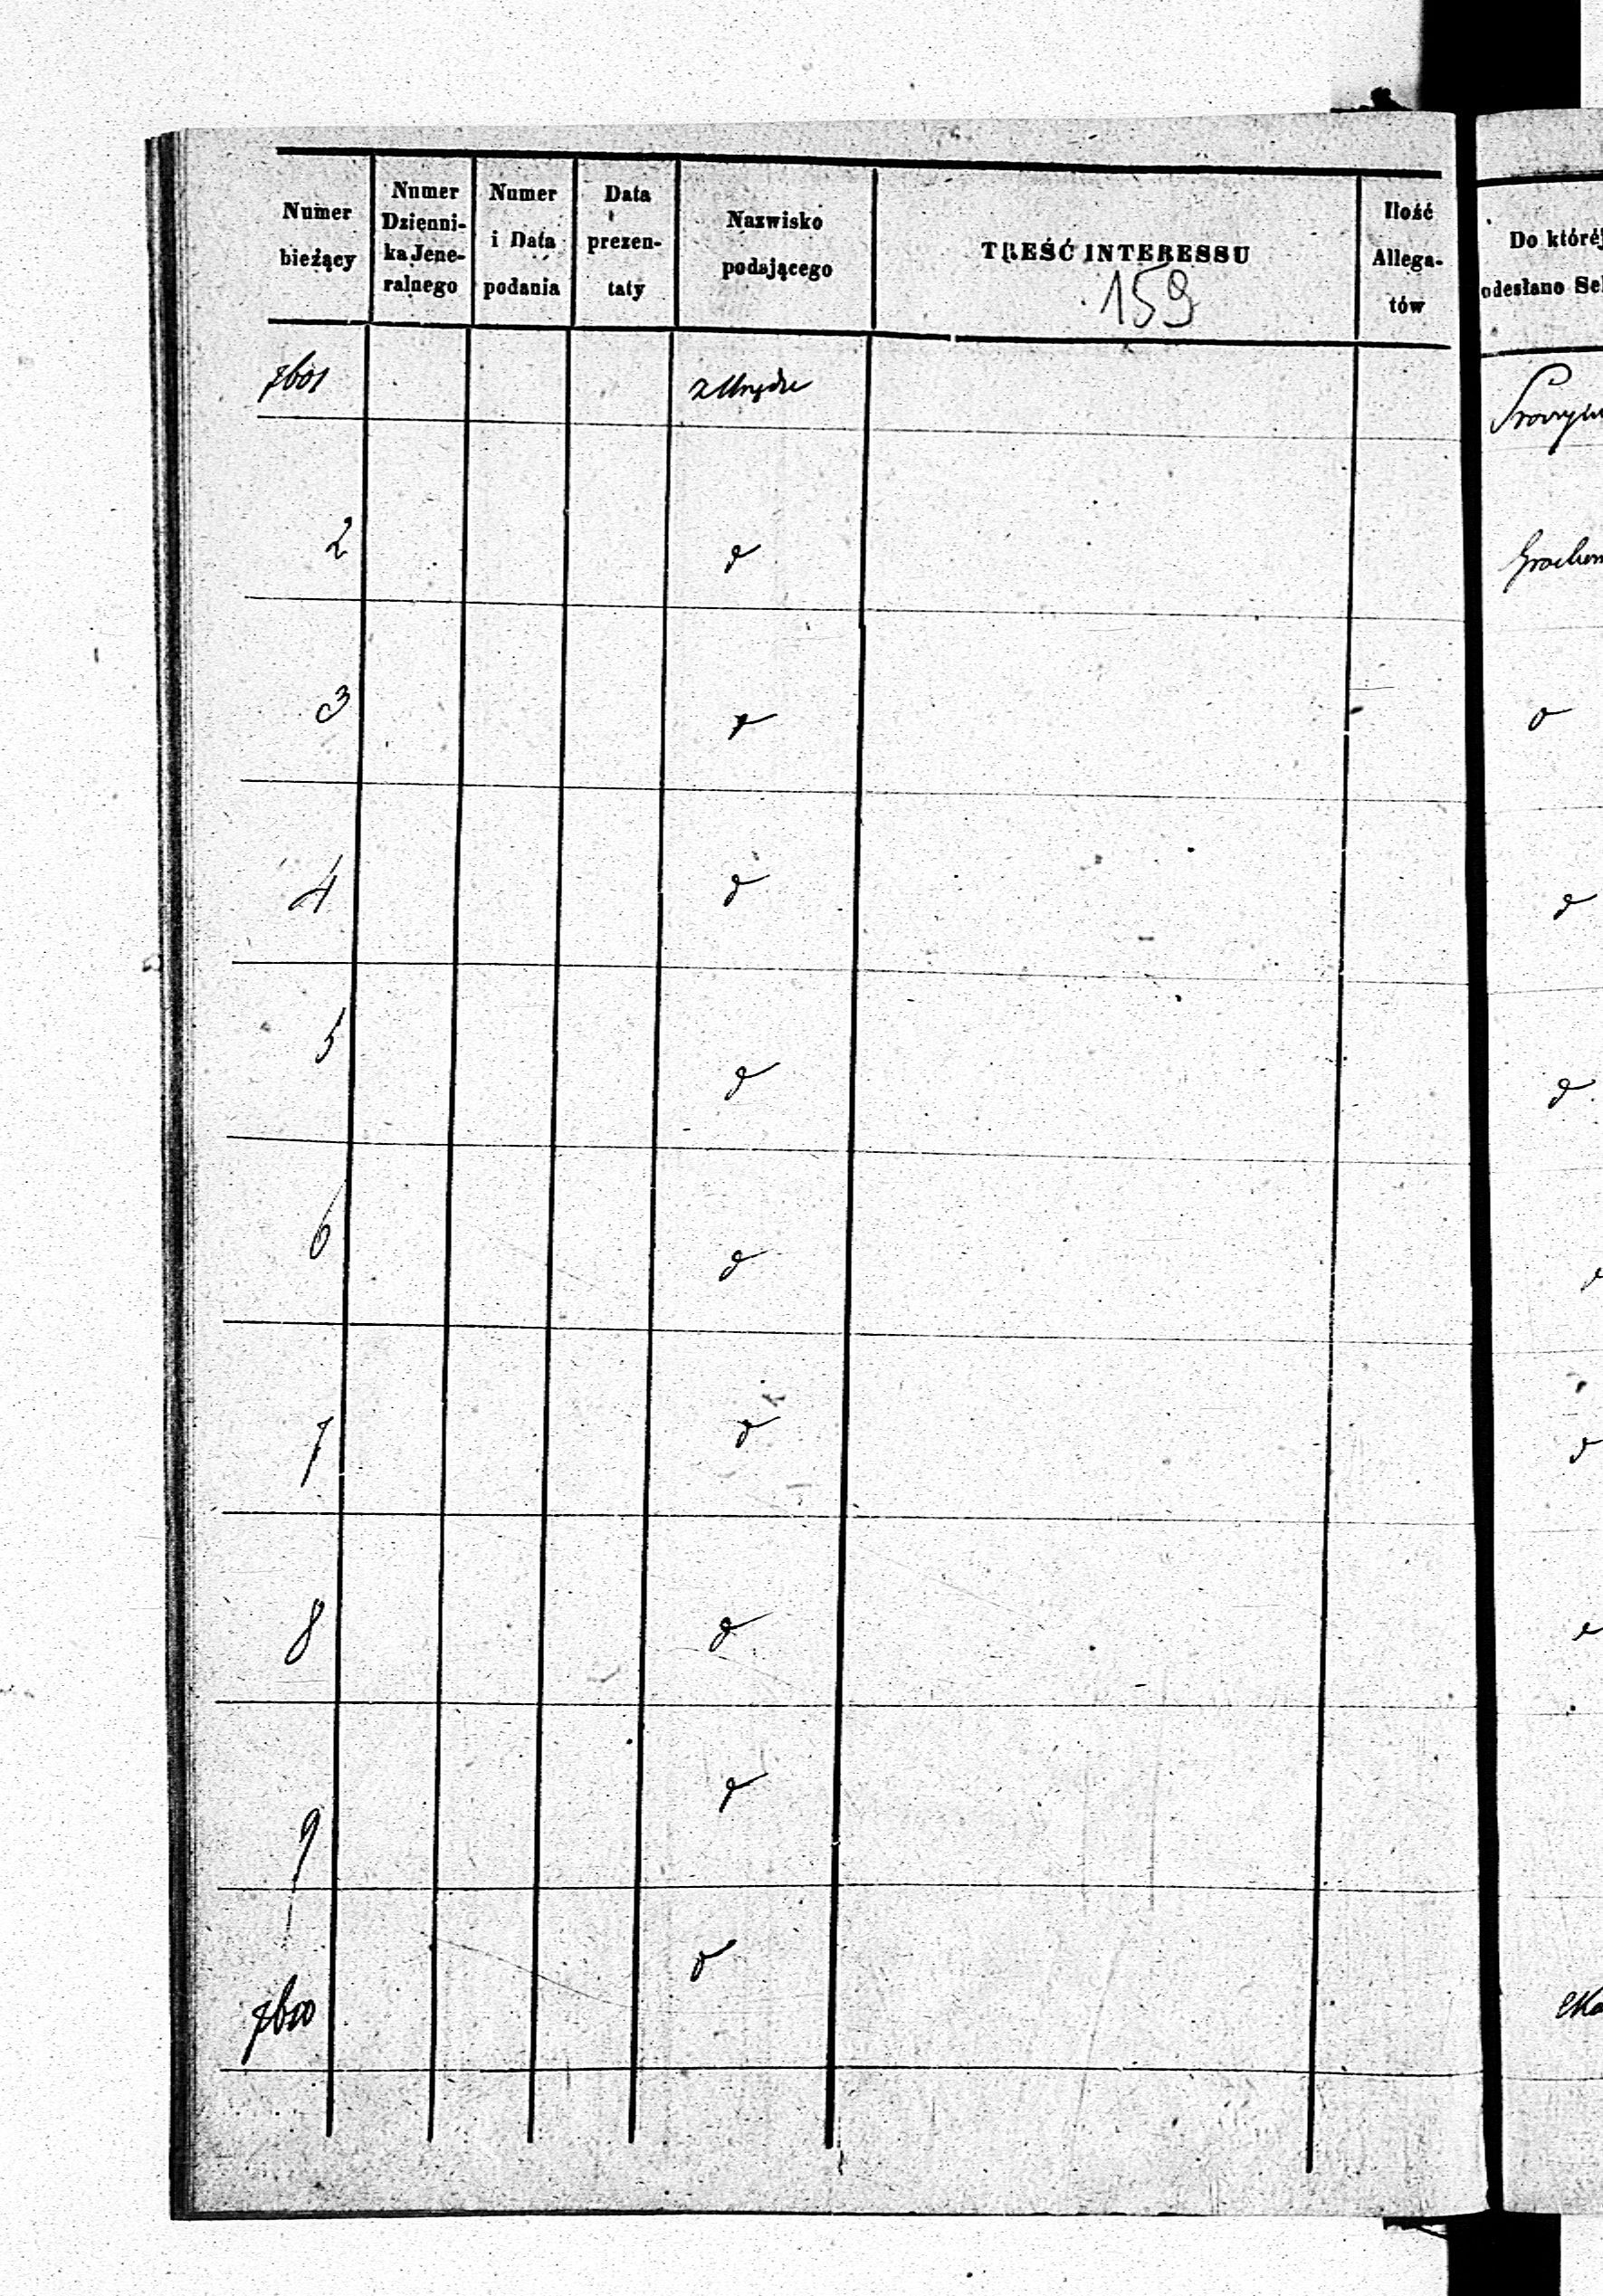 Numer bieżący
Numer Dzienni-ka Jene-ralnego
Numer i Data podania
Data prezen-taty
Nazwisko podającego
TREŚĆ INTERESSU
Ilość Allega-tów
Do któréj
odesłano
159
7601
z Urzędu
2
d
3
d
o
4
d
d
5
d
d
6
d
7
d
d
8
d
9
d
7610
d